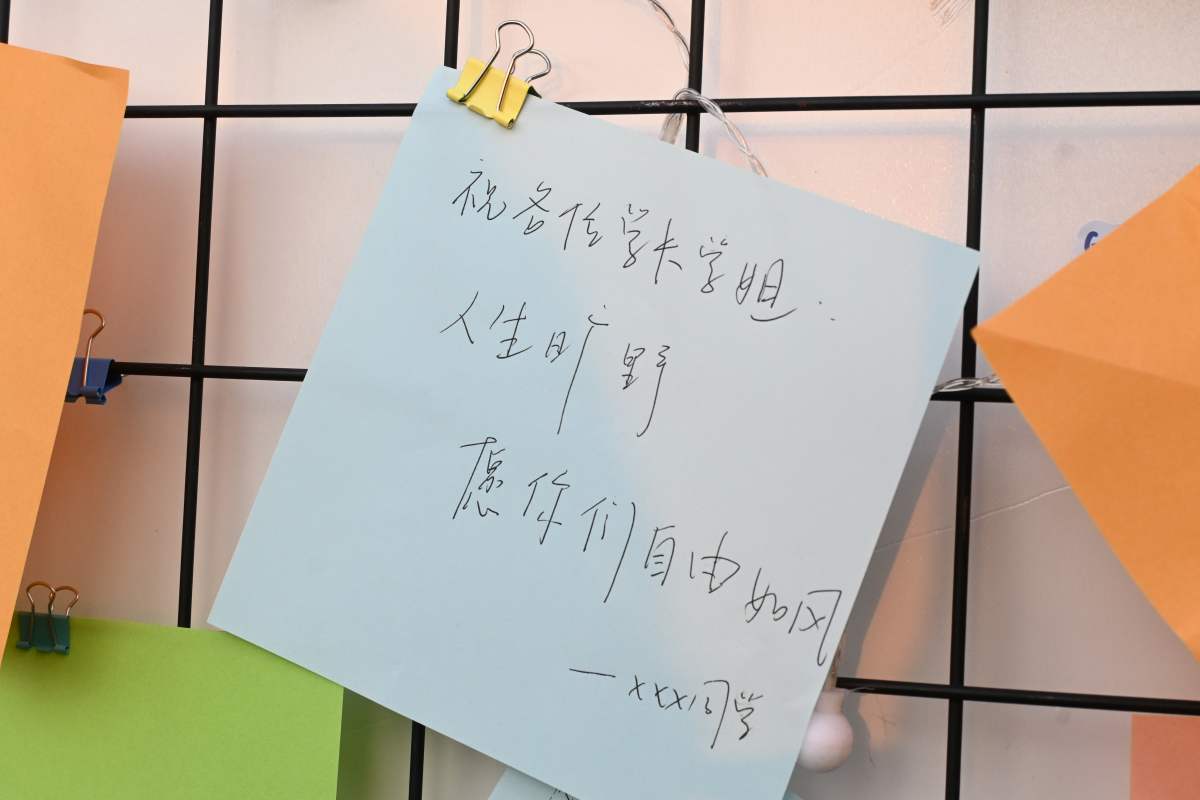 祝各位学长学姐：
人生旷野
愿你们自由如风
—xxx同学